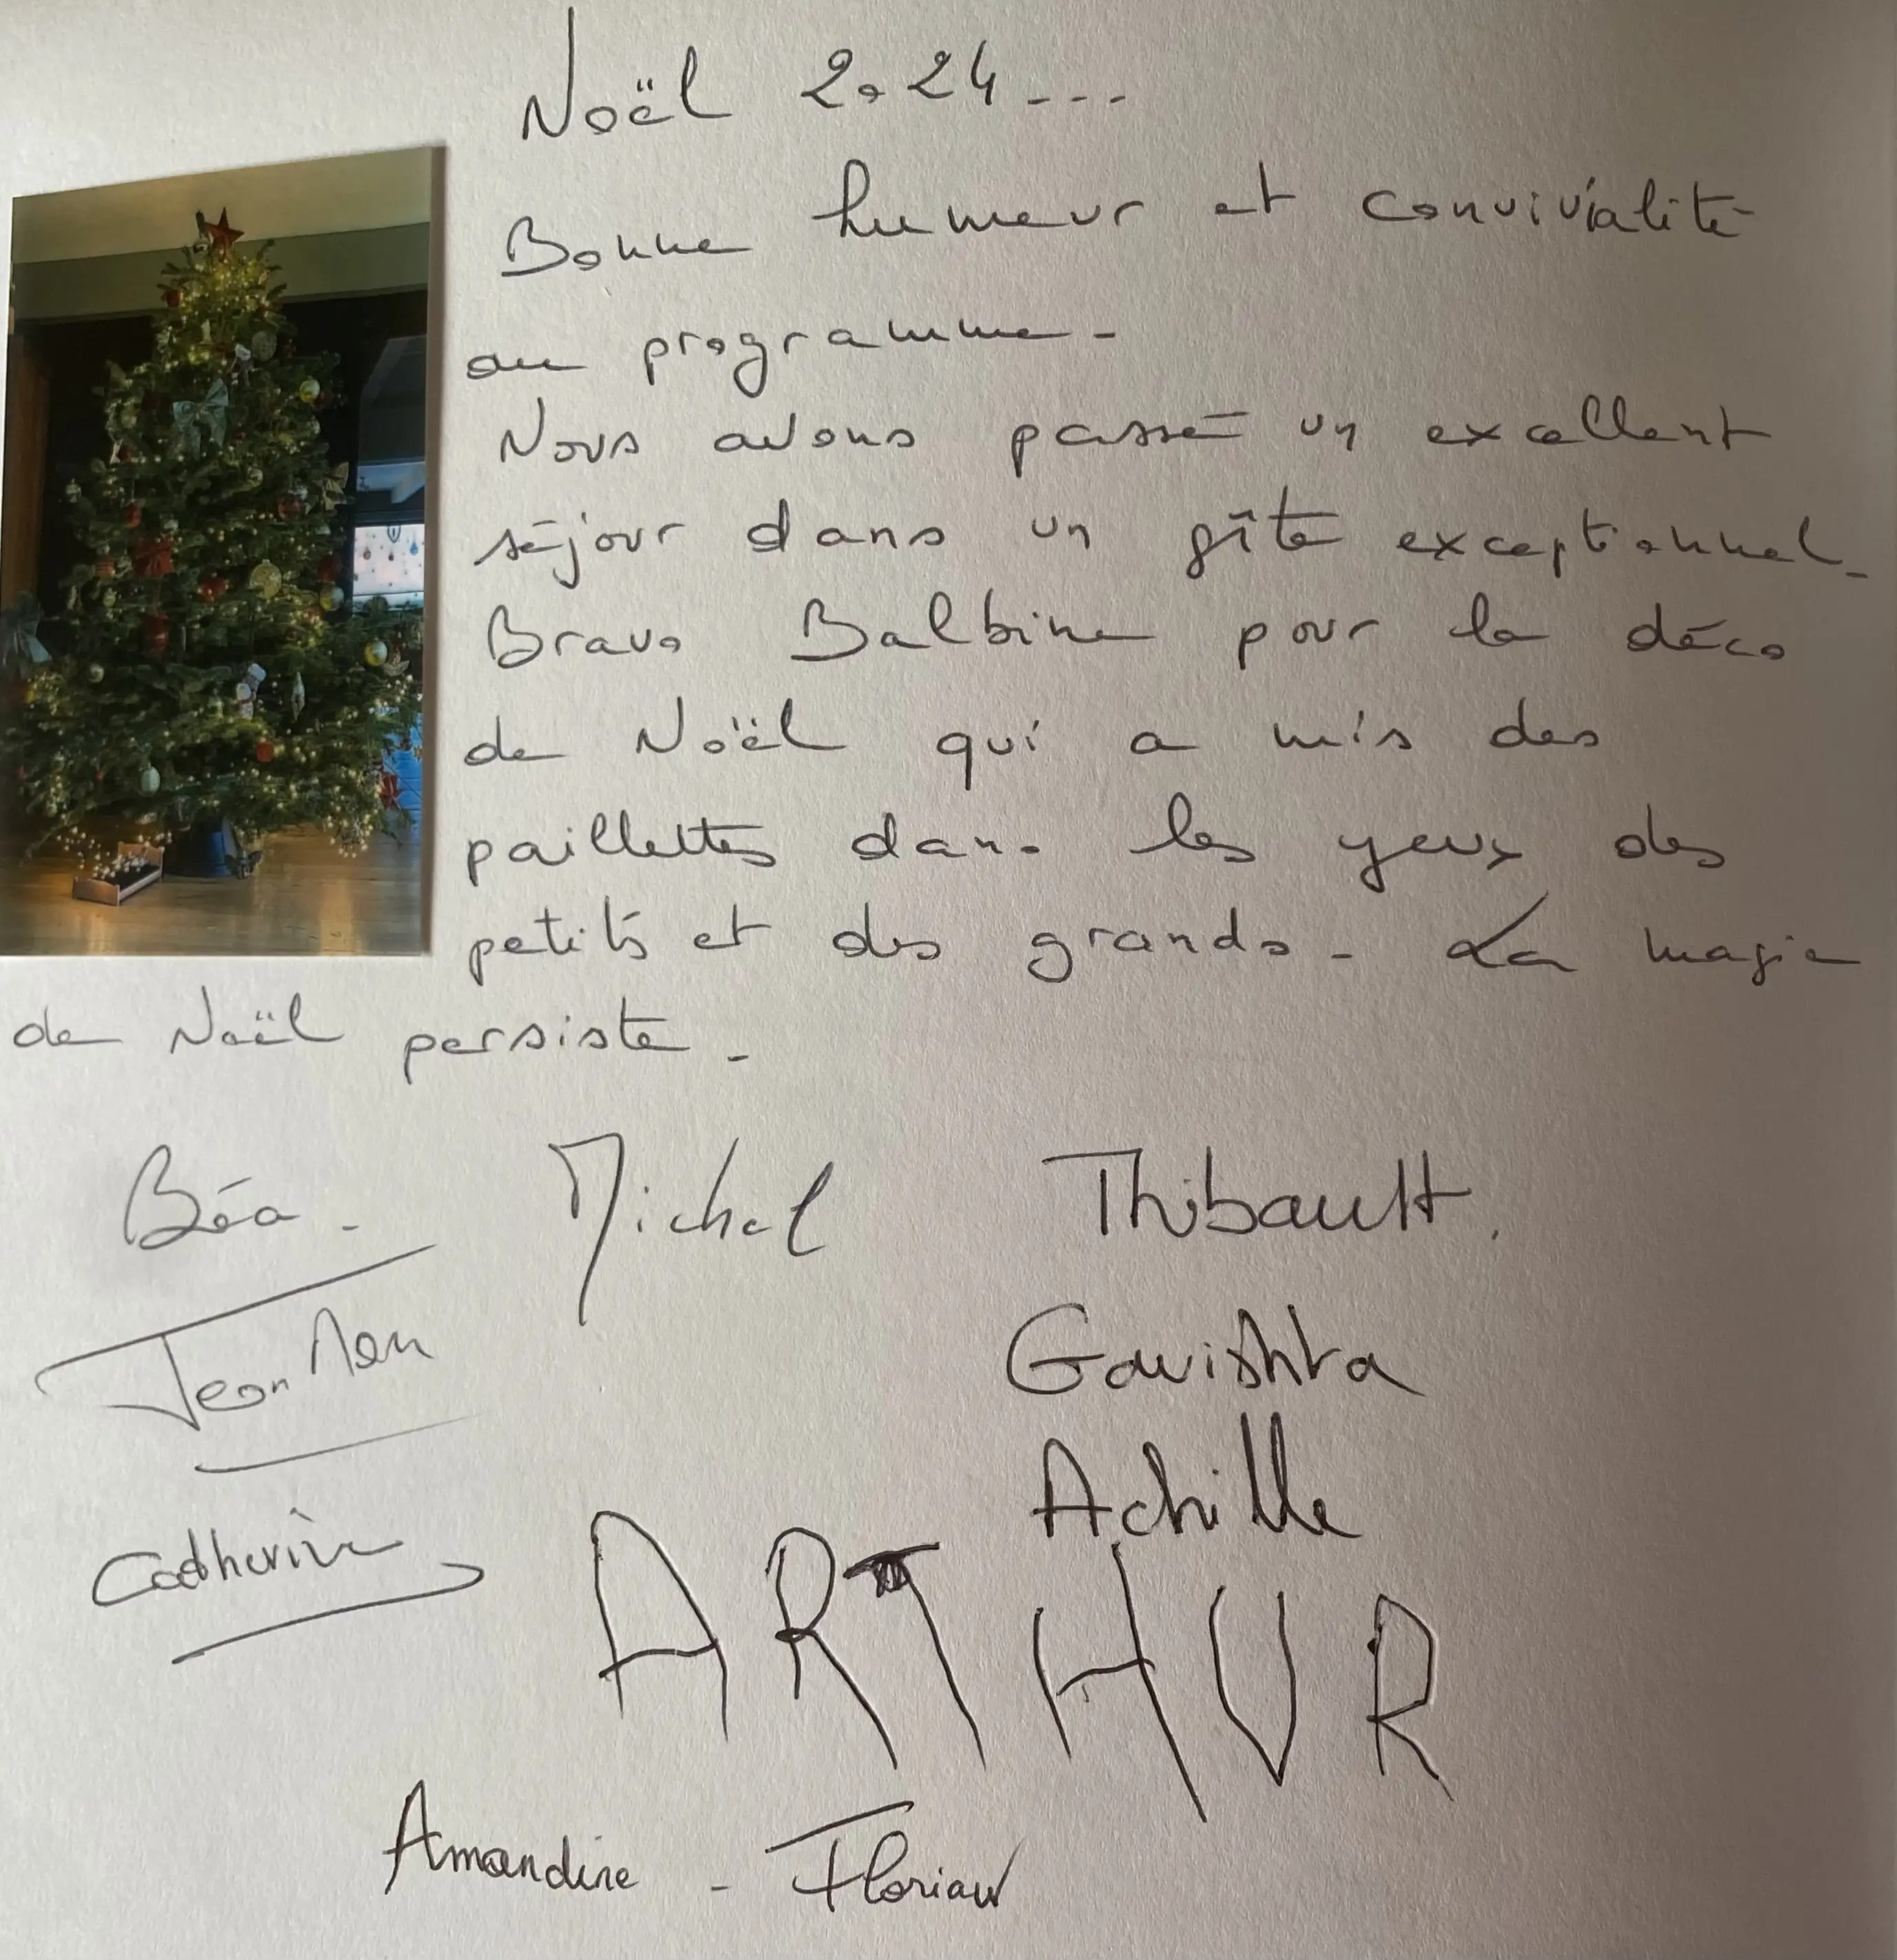 Noël 2024...
Bonne humeur et convivialité
au programme.
Nous avons passé un excellent
séjour dans un gîte exceptionnel.
Bravo Balbine pour la déco
de Noël qui a mis des
paillettes dans les yeux des
petits et des grands. La magie
de Noël persiste.
Béa. Michel Thibault.
Jean
Gavishta
Achille
Catherine
ARTHUR
Amandine - Florian